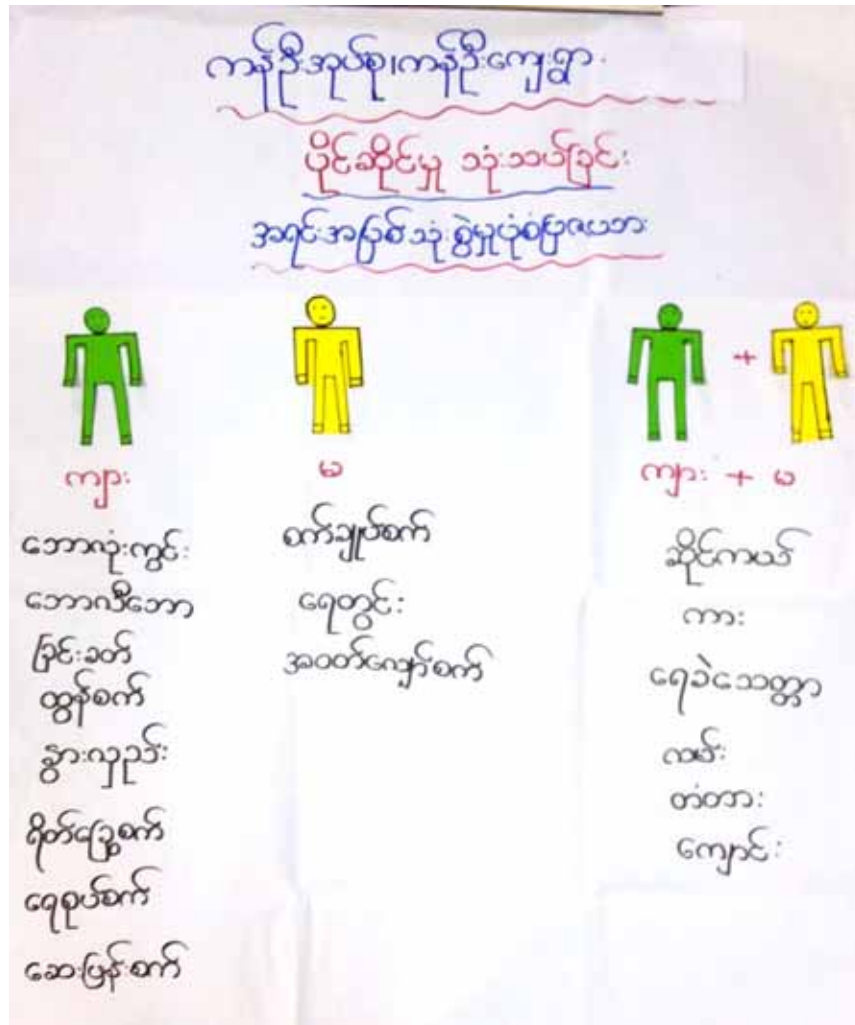 ကန်ဦးအုပ်စု၊ကန်ဦးကျေးရွာ
ပိုင်ဆိုင်မှု သုံးသပ်ခြင်း
အရင်းအမြစ်သုံးစွဲမှုပုံစံပြဇယား
ကျား
မ
ကျား + မ
ဘောလုံးကွင်း
ဘောလီဘော
ခြင်းခတ်
ထွန်စက်
နွားလှည်း
ရိတ်ခြွေစက်
ရေစုပ်စက်
ဆေးဖြန်းစက်
စက်ချုပ်စက်
ရေတွင်း
အဝတ်လျှော်စက်
ဆိုင်ကယ်
ကား
ရေခဲသေတ္တာ
လမ်း
တံတား
ကျောင်း